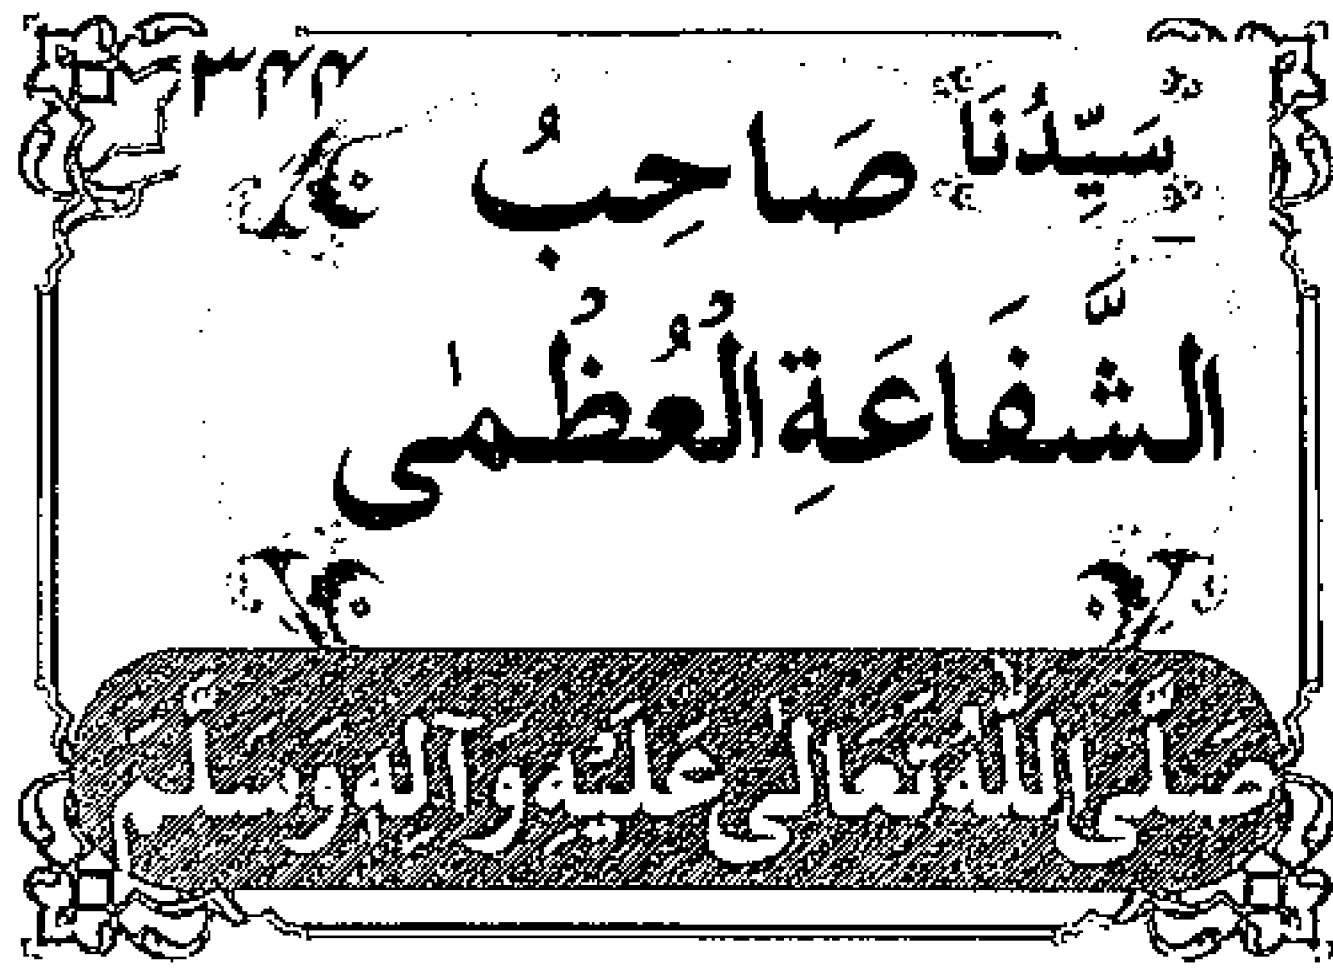 سَيِّدُنَا صَاحِبُ
الشَّفَاعَةِ الْعُظْمٰى
صَلَّى اللّٰهُ تَعَالٰى عَلَيْهِ وَآلِهٖ وَسَلَّمَ